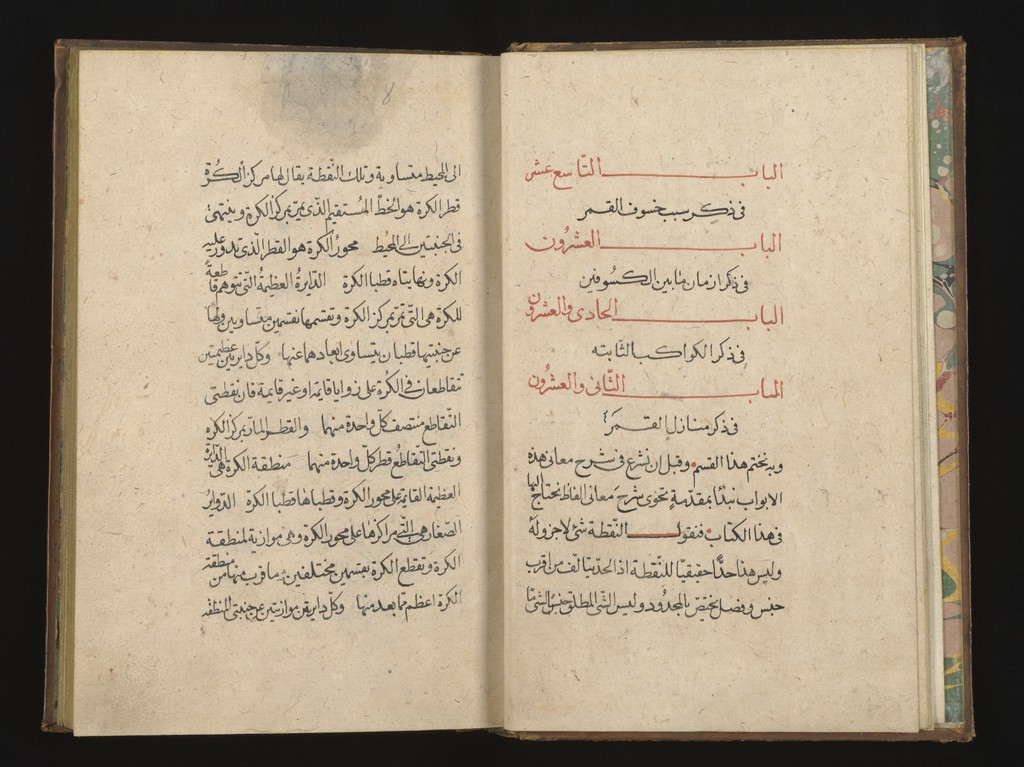 الباب التاسع عشر
فى ذكر سبب خسوف القمر
الباب العشرون
فى ذكر ازمان مابين الكسوفين
الباب الحادى والعشرون
فى ذكر الكواكب الثابته
الباب الثانى والعشرون
فى ذكر منازل القمر
وبه نختم هذا القسم وقبل ان نشرع فى شرح معانى هذه
الابواب نبدأ بمقدمة تحوى شرح معانى الفاظ نحتاج اليها
فى هذا الكتاب فنقول النقطة شئ لا جزو له
وليس هذا حدا حقيقيا للنقطة اذ الحد يتالف من اقرب
جنس وفصل يختص بالمحدود وليس الشئ المطلق جنس الشئ ما
٨
الى المحيط متساوية وتلك النقطة يقال لها مركز الكرة
قطر الكرة هو الخط المستقيم الذى يمر بمركز الكرة وينتهى
فى الجنبتين الى المحيط محور الكرة هو القطر الذى تدور عليه
الكرة ونهايتاه قطبا الكرة الدايرة العظيمة التى تتوهم قاطعة
للكرة هى التى تمر بمركز الكرة وتقسمها بقسمين متساويين ولها
عن جنبتيها قطبان يتساوى ابعادهما عنها وكل دايرتين عظيمتين
تتقاطعان فى الكرة على زوايا قايمة او غير قايمة فان نقطتى
التقاطع منتصف كل واحدة منهما والقطر المار بمركز الكره
ونقطتى التقاطع قطر كل واحدة منهما منطقة الكره هى الدايرة
العظيمة القايمة على محور الكرة وقطباها قطبا الكرة الدواير
الصغار هى التى مراكزها على محور الكرة وهى موازية لمنطقة
الكرة وتقطع الكرة بقسمين مختلفين وما قرب منها من منطقة
الكرة اعظم مما بعد منها وكل دايرتين موازيتين عن جنبتى المنطقه